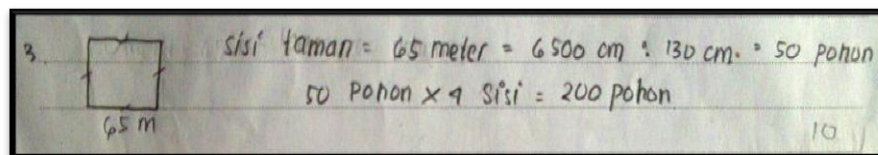 3. sisi taman = 65 meter = 6500 cm : 130 cm. = 50 pohon
50 Pohon x 4 sisi = 200 pohon
65 m
10